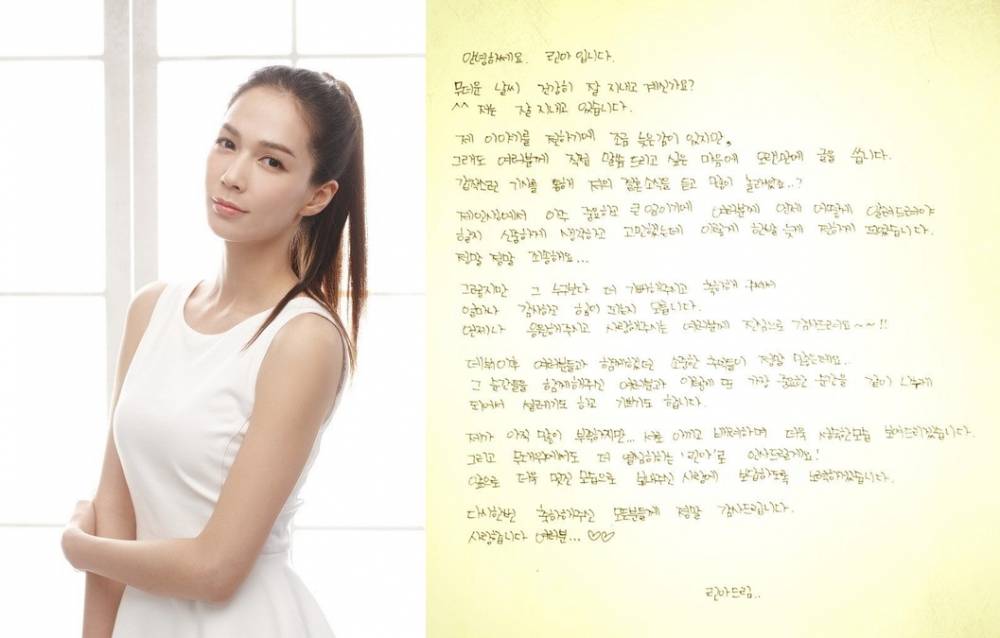 안녕하세요. 린아 입니다.
무더운 날씨 건강히 잘 지내고 계신가요?
^^ 저는 잘 지내고 있습니다.
제 이야기를 전하기에 조금 늦은감이 있지만,
그래도 여러분께 직접 말씀 드리고 싶은 마음에 오랜만에 글을 씁니다.
갑작스런 기사를 통해 저의 결혼소식을 듣고 많이 놀라셨죠..?
제인생에서 아주 중요하고 큰 일이기에 여러분께 언제 어떻게 알려드려야
할지 신중하게 생각하고 고민했는데 이렇게 한발 늦게 전하게 되었습니다.
정말 정말 죄송해요...
그렇지만 그 누구보다 더 기뻐해주시고 축하해 주셔서
얼마나 감사하고 힘이 되는지 모릅니다.
언제나 응원해주시고 사랑해주시는 여러분께 진심으로 감사드려요~~!!
데뷔이후 여러분들과 함께했던 소중한 추억들이 정말 많은데요.
그 순간들을 함께해주신 여러분과 이렇게 또 가장 중요한 순간을 같이 나누게
되어서 설레기도 하고 기쁘기도 합니다.
제가 아직 많이 부족하지만... 서로 아끼고 배려하며 더욱 성숙한모습 보여드리겠습니다.
그리고 무대위에서도 더 열심히하는 '린아'로 인사드릴게요!
앞으로 더욱 멋진 모습으로 보내주신 사랑에 보답하도록 노력하겠습니다.
다시한번 축하해주신 모든분들께 정말 감사드립니다.
사랑합니다 여러분... ♡♡
린아드림..